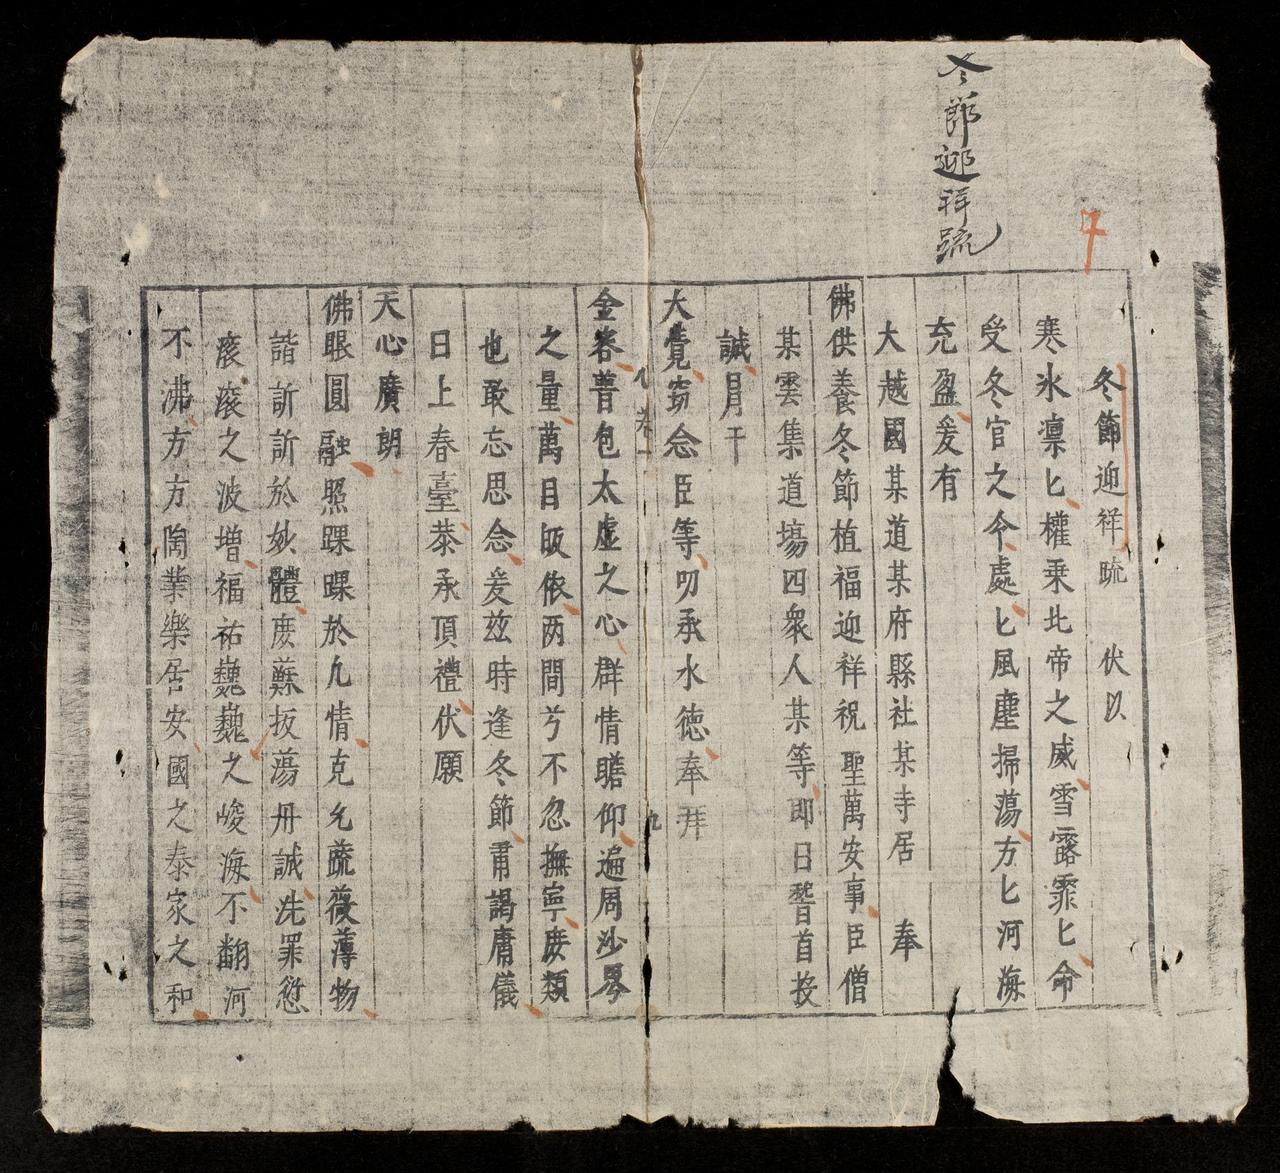 冬節迎祥疏
冬節迎祥疏 伏以
寒氷凛匕權乗北帝之威雪露霏匕命
受冬官之令處匕風塵掃蕩方匕河海
充盈爰有
大越國某道某府縣社某寺居 奉
佛供養冬節植福迎祥祝 聖萬安事臣僧
某雲集道場四衆人某等即日誓首投
誠月干
大覺窃念臣等叨承水德奉拜
卷一 九
金容普包太虚之心群情瞻仰遍周沙界
之量萬目皈依两間兮不忽撫寧庶類
也敢忘思念爰兹時逢冬節肅謁庸儀
日上春臺恭承頂禮伏願
天心廣朗
佛眼圓融照踝踝於九情克允蔬薇薄物
諧訢訢於妙體庻蘇扳蕩丹誠洗罪愆
滚滚之波增福祐巍巍之峻海不翻河
不沸方方陶業樂居安國之泰家之和